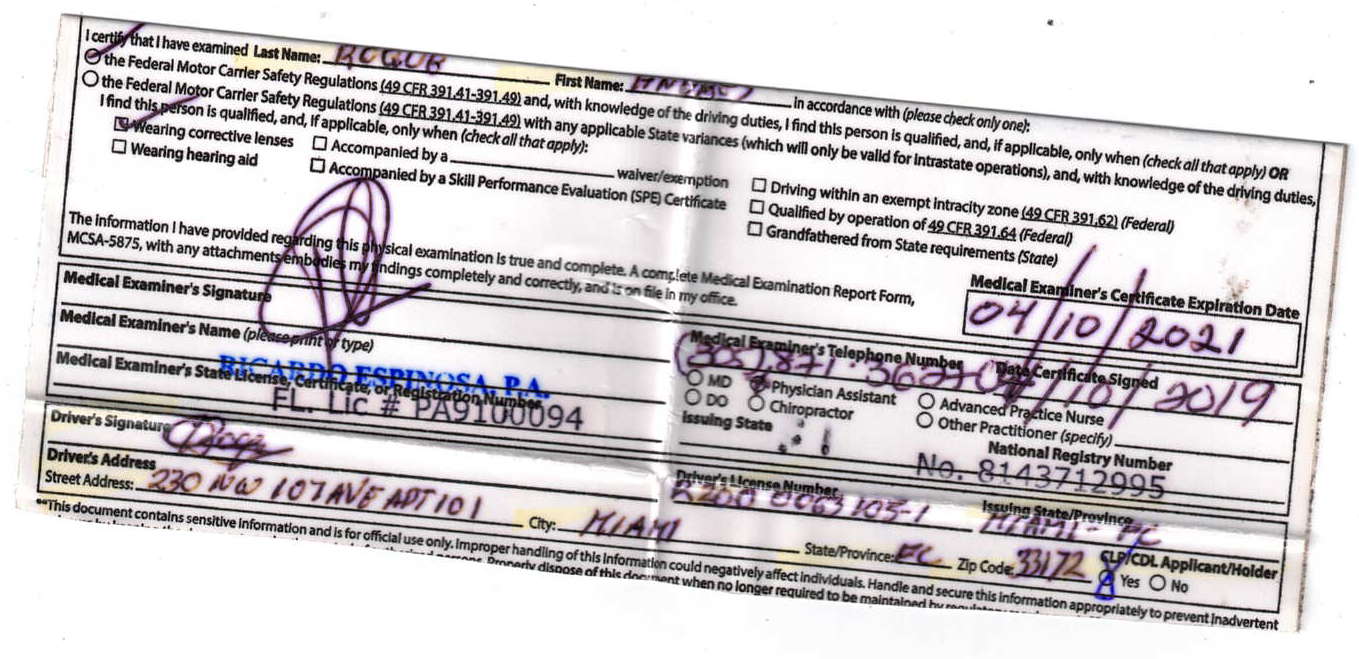 I certify that I have examined Last Name: ROQUE First Name: in accordance with (please check only one):
the Federal Motor Carrier Safety Regulations (49 CFR 391.41-391.49) and, with knowledge of the driving duties, I find this person is qualified, and, if applicable, only when (check all that apply) OR
the Federal Motor Carrier Safety Regulations (49 CFR 391.41-391.49) with any applicable State variances (which will only be valid for intrastate operations), and, with knowledge of the driving duties,
I find this person is qualified, and, if applicable, only when (check all that apply):
Wearing corrective lenses Accompanied by a waiver/exemption Driving within an exempt intracity zone (49 CFR 391.62) (Federal)
Wearing hearing aid Accompanied by a Skill Performance Evaluation (SPE) Certificate Qualified by operation of 49 CFR 391.64 (Federal)
Grandfathered from State requirements (State)
The information I have provided regarding this physical examination is true and complete. A complete Medical Examination Report Form,
MCSA-5875, with any attachments embodies my findings completely and correctly, and is on file in my office.
Medical Examiner's Certificate Expiration Date
04/10/2021
Medical Examiner's Signature
Medical Examiner's Telephone Number Date Certificate Signed
(305) 871-3627 04/10/2019
Medical Examiner's Name (please print or type)
RICARDO ESPINOSA, P.A.
MD Physician Assistant Advanced Practice Nurse
DO Chiropractor Other Practitioner (specify)
Medical Examiner's State License, Certificate, or Registration Number
FL. Lic # PA9100094
Issuing State National Registry Number
No. 8143712995
Driver's Signature
Driver's License Number Issuing State/Province
MIAMI-
Driver's Address
Street Address: 230 NW 107 AVE APT 101 City: MIAMI State/Province: Zip Code: 33172
CLP/CDL Applicant/Holder
Yes No
**This document contains sensitive information and is for official use only. Improper handling of this information could negatively affect individuals. Handle and secure this information appropriately to prevent inadvertent
Properly dispose of this document when no longer required to be maintained by